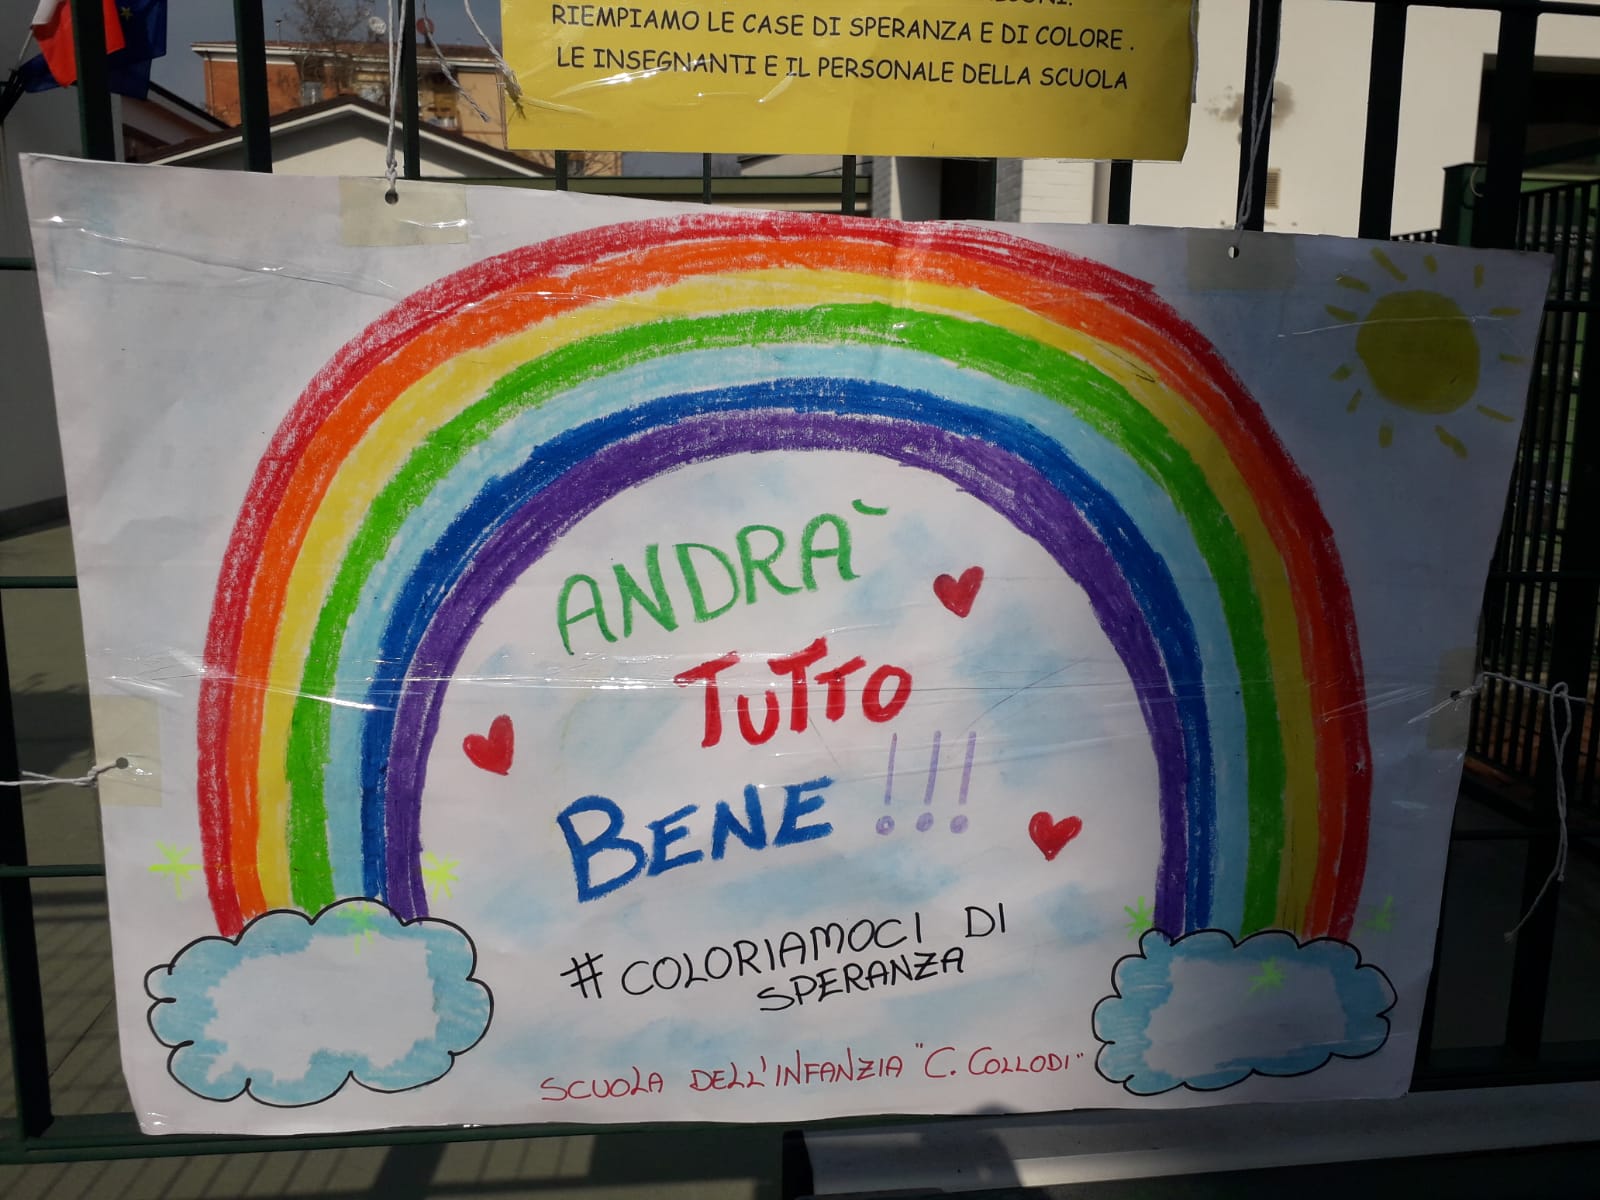 RIEMPIAMO LE CASE DI SPERANZA E DI COLORE .
LE INSEGNANTI E IL PERSONALE DELLA SCUOLA
ANDRA`
TUTTO
BENE !!!
# COLORIAMOCI DI
SPERANZA
SCUOLA DELL'INFANZIA "C. COLLODI"